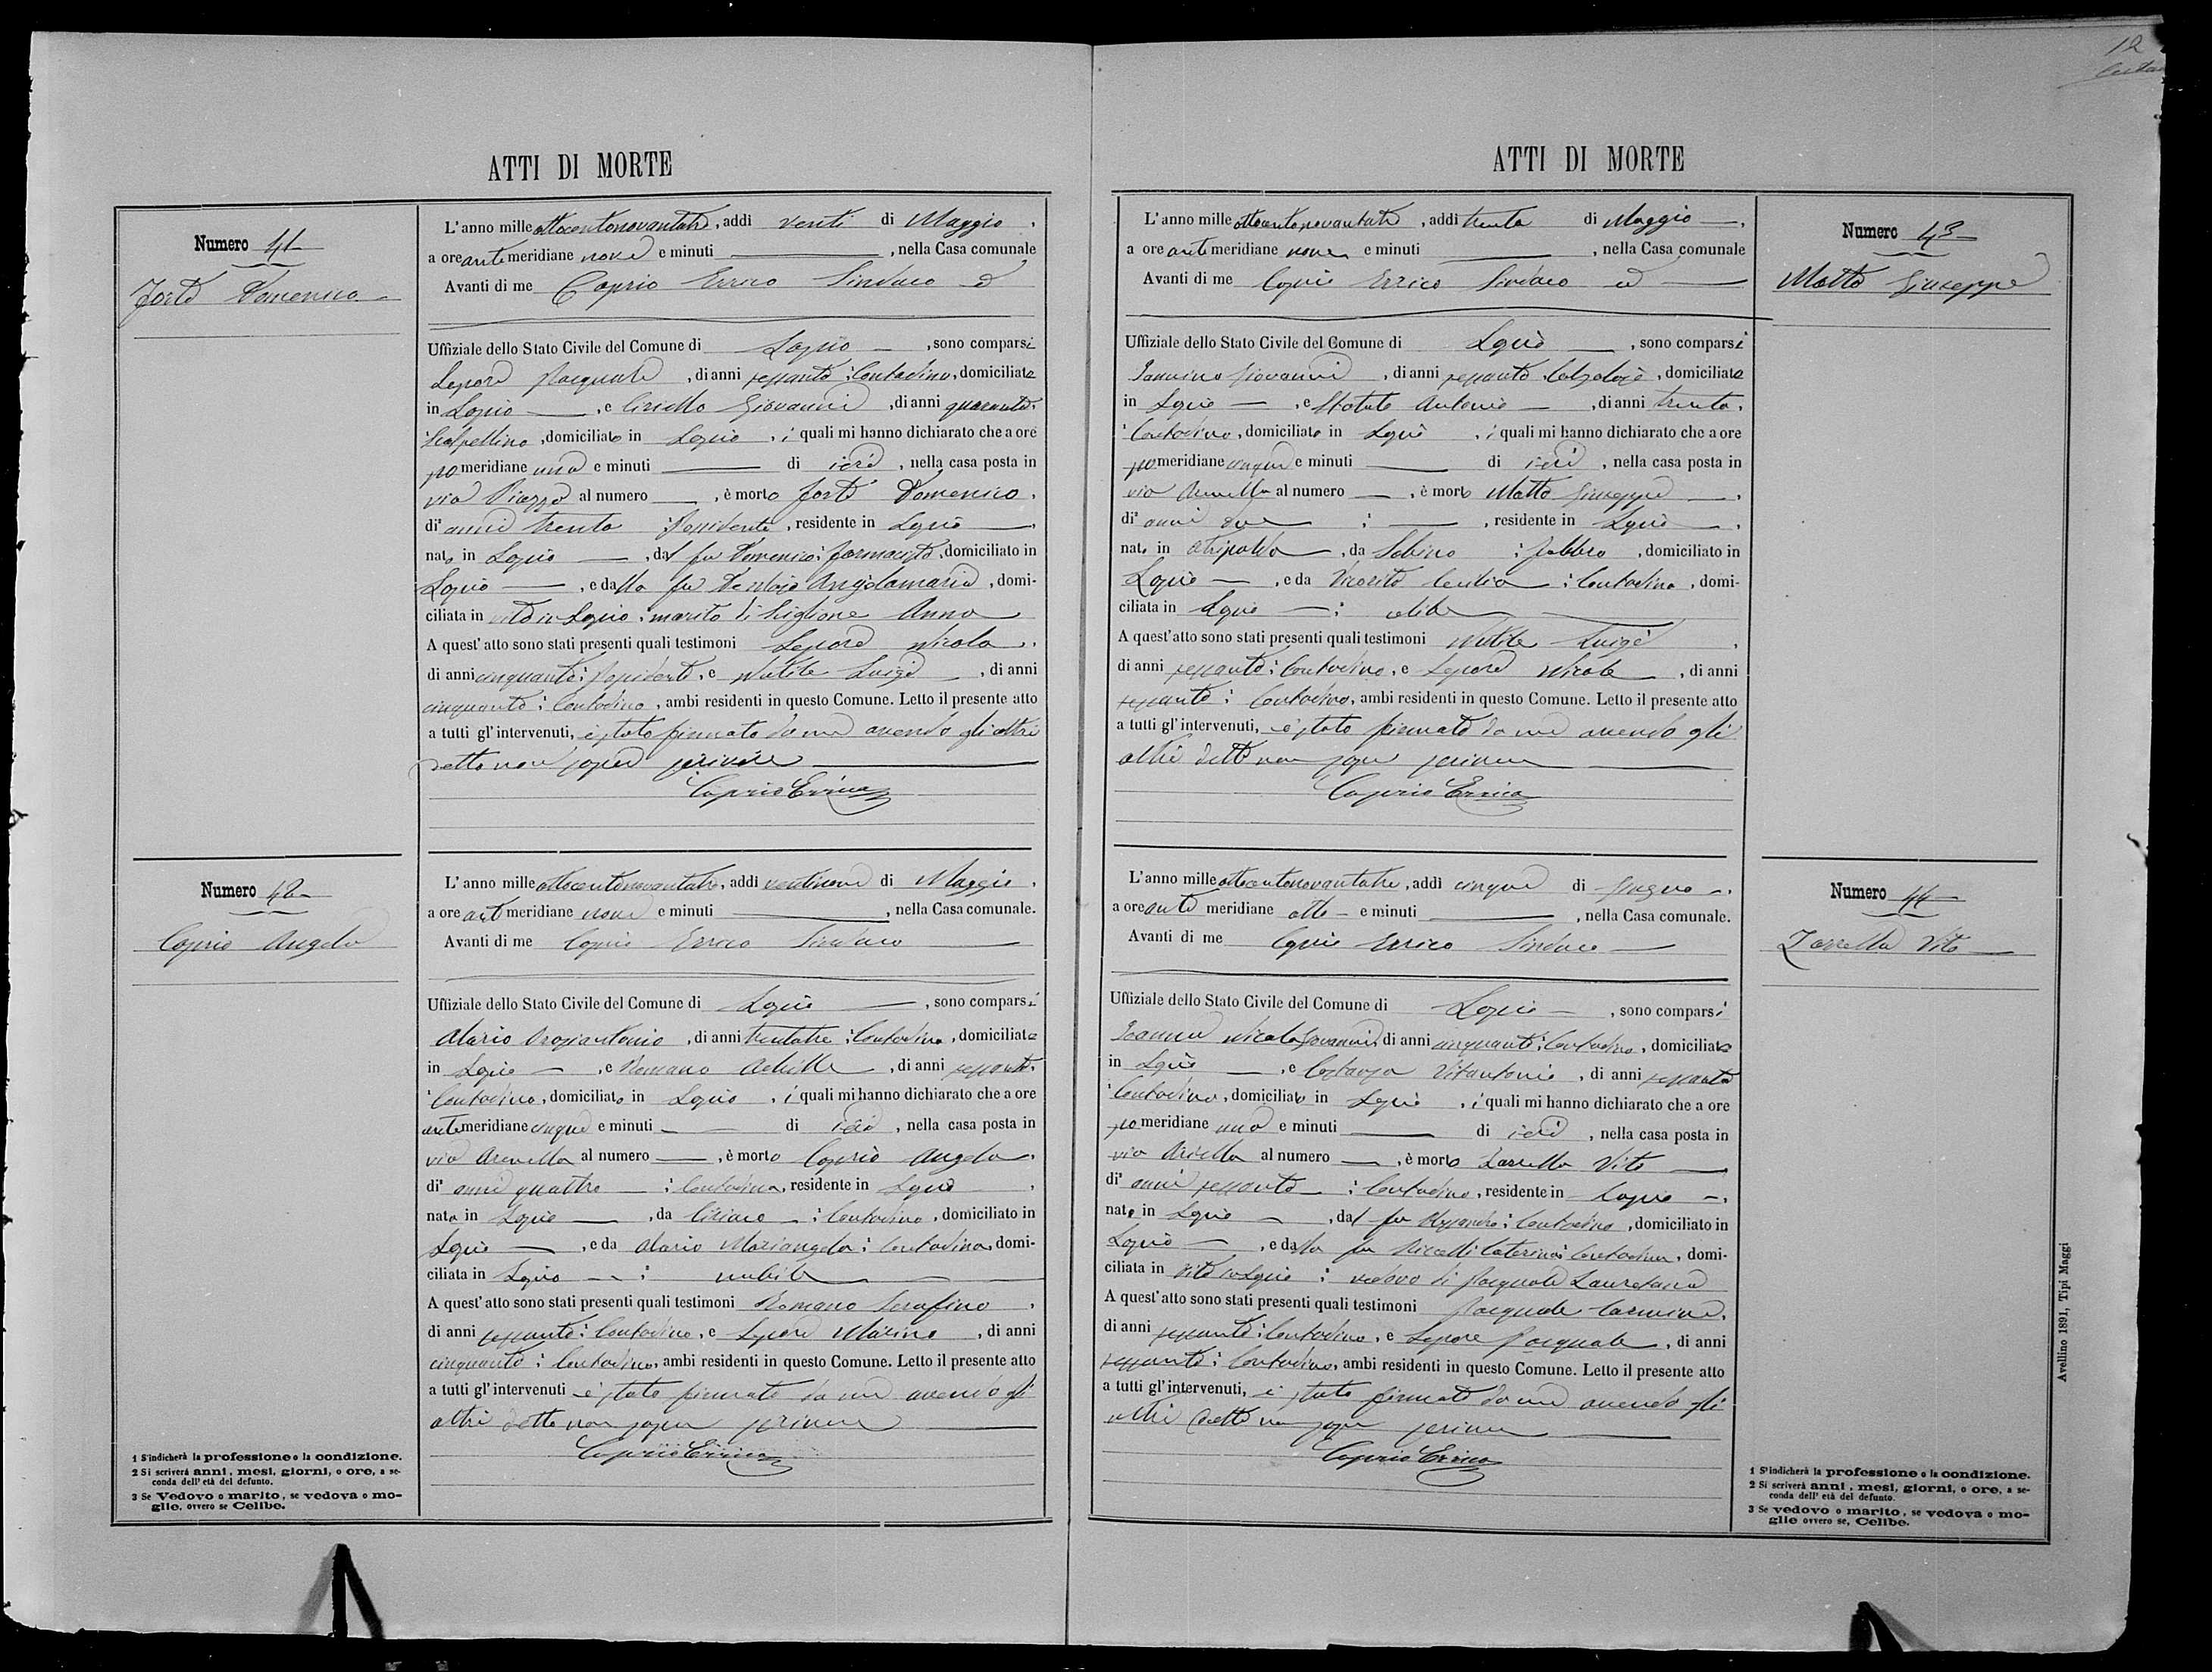 12
ATTI DI MORTE
Numero 41
Forte Domenico
L'anno mille ottocentonovantatre, addì venti di Maggio,
a ore antemeridiane nove e minuti , nella Casa comunale
Avanti di me Caprio Errico Sindaco
Uffiziale dello Stato Civile del Comune di Lapio , sono comparsi
Lepore Pasquale , di anni sessanta, Contadino, domiciliato
in Lapio , e Ciriello Giovanni , di anni quaranta,
Scalpellino, domiciliato in Lapio , i quali mi hanno dichiarato che a ore
pomeridiane una e minuti di ieri , nella casa posta in
via Piazza al numero , è morto Forte Domenico,
di² anni trenta Possidente, residente in Lapio
nato in Lapio , dal fu Domenico; farmacista, domiciliato in
Lapio , e dalla fu Angelamaria , domi-
ciliata in vita in Lapio, marito di Anna
A quest'atto sono stati presenti quali testimoni Lepore Nicola,
di anni cinquanta; Possidente, e Luigi , di anni
cinquanta; Contadino, ambi residenti in questo Comune. Letto il presente atto
a tutti gl'intervenuti, è stato firmato da me avendo gli altri
detto non saper scrivere
Caprio Errico
Numero 42
Caprio Angela
L'anno mille ottocentonovantatre, addì ventinove di Maggio,
a ore antemeridiane nove e minuti , nella Casa comunale.
Avanti di me Caprio Errico Sindaco
Uffiziale dello Stato Civile del Comune di Lapio , sono comparsi
Alario , di anni trentatre; Contadino, domiciliato
in Lapio , e Romano Achille , di anni sessanta,
Contadino, domiciliato in Lapio , i quali mi hanno dichiarato che a ore
antemeridiane cinque e minuti di ieri , nella casa posta in
via Arenella al numero , è morto Caprio Angela,
di² anni quattro ; Contadina, residente in Lapio ,
nata in Lapio , da Ciriaco ; Contadino, domiciliato in
Lapio , e da Alario Mariangela; Contadina, domi-
ciliata in Lapio ; nubile
A quest'atto sono stati presenti quali testimoni Romano Serafino,
di anni sessanta; Contadino, e Lepore Marino , di anni
cinquanta; Contadino, ambi residenti in questo Comune. Letto il presente atto
a tutti gl'intervenuti è stato firmato da me avendo gli
altri detto non saper scrivere
Caprio Errico
1 S'indicherà la professione o la condizione.
2 Si scriverà anni, mesi, giorni, o ore, a se-
conda dell'età del defunto.
3 Se Vedovo o marito, se vedova o mo-
glie, ovvero se Celibe.
ATTI DI MORTE
L'anno mille ottocentonovantatre, addì trenta di Maggio ,
a ore antemeridiane nove e minuti , nella Casa comunale
Avanti di me Caprio Errico Sindaco
Uffiziale dello Stato Civile del Comune di Lapio , sono comparsi
Giovanni , di anni sessanta, Calzolaio, domiciliato
in Lapio , e Antonio , di anni trenta,
Contadino, domiciliato in Lapio , i quali mi hanno dichiarato che a ore
pomeridiane cinque e minuti di ieri , nella casa posta in
via Arenella al numero , è morto Matto Giuseppe ,
di² anni due ; , residente in Lapio ,
nato in Atripalda , da Sabino ; fabbro , domiciliato in
Lapio , e da ; Contadina, domi-
ciliata in Lapio ; celibe
A quest'atto sono stati presenti quali testimoni Luigi ,
di anni sessanta; Contadino, e Lepore Nicola , di anni
sessanta; Contadino, ambi residenti in questo Comune. Letto il presente atto
a tutti gl'intervenuti, è stato firmato da me avendo gli
altri detto non saper scrivere
Caprio Errico
Numero 43
Matto Giuseppe
L'anno mille ottocentonovantatre, addì cinque di Giugno ,
a ore ante meridiane otto e minuti , nella Casa comunale.
Avanti di me Caprio Errico Sindaco
Uffiziale dello Stato Civile del Comune di Lapio , sono comparsi
Nicola Giovanni, di anni cinquanta; Contadino, domiciliato
in Lapio , e Costanza Vitantonio , di anni sessanta
Contadino, domiciliato in Lapio , i quali mi hanno dichiarato che a ore
pomeridiane una e minuti di ieri , nella casa posta in
via al numero , è morto Zarrella Vito ,
di² anni sessanta ; Contadino, residente in Lapio ,
nato in Lapio , dal fu Alessandro; Contadino, domiciliato in
Lapio , e dalla fu Caterina; Contadina, domi-
ciliata in vita in Lapio ; vedovo di
A quest'atto sono stati presenti quali testimoni Pasquale Carmine,
di anni sessanta; Contadino, e Lepore Pasquale , di anni
sessanta; Contadino, ambi residenti in questo Comune. Letto il presente atto
a tutti gl'intervenuti, è stato firmato da me avendo gli
altri detto non saper scrivere
Caprio Errico
Numero 44
Zarrella Vito
1 S'indicherà la professione o la condizione.
2 Si scriverà anni, mesi, giorni, o ore, a se-
conda dell'età del defunto.
3 Se vedovo o marito, se vedova o mo-
glie ovvero se, Celibe.
Avellino 1891, Tipi Maggi